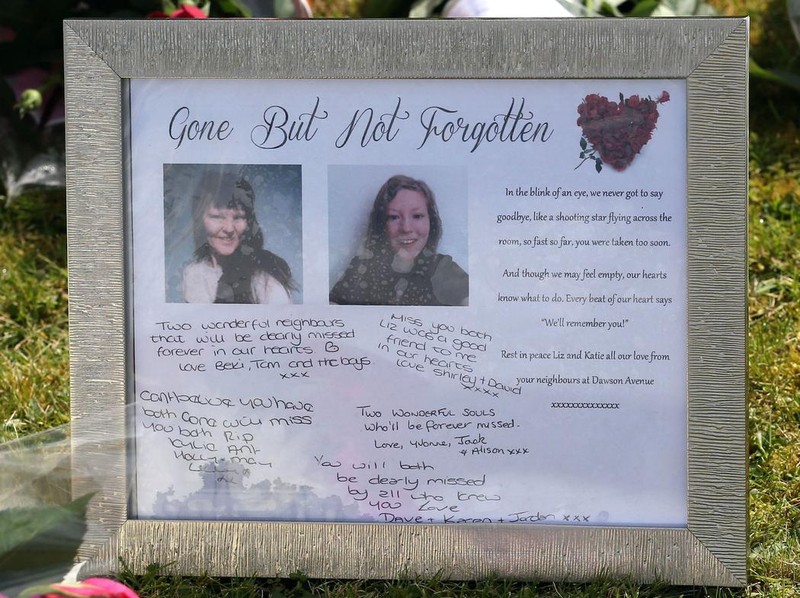 Gone But Not Forgotten
In the blink of an eye, we never got to say
goodbye, like a shooting star flying across the
room, so fast so far, you were taken too soon.
And though we may feel empty, our hearts
know what to do. Every beat of our heart says
"We'll remember you!"
Rest in peace Liz and Katie all our love from
your neighbours at Dawson Avenue
xxxxxxxxxxxxxx
Two wonderful neighbours
that will be dearly missed
forever in our hearts
Love Beki, Tom and the boys.
xxx
Miss you both
Liz was a good
friend to me
in our hearts
Love Shirley + David
xxxx
you have
both Gone will miss
you both R.I.P
Kylie Ant
Holly + May
Two Wonderful souls
who'll be forever missed.
Love, Yvonne, Jack
& Alison xxx
You will both
be dearly missed
by all who knew
you Love
Dave + Karen + Jordan xxx